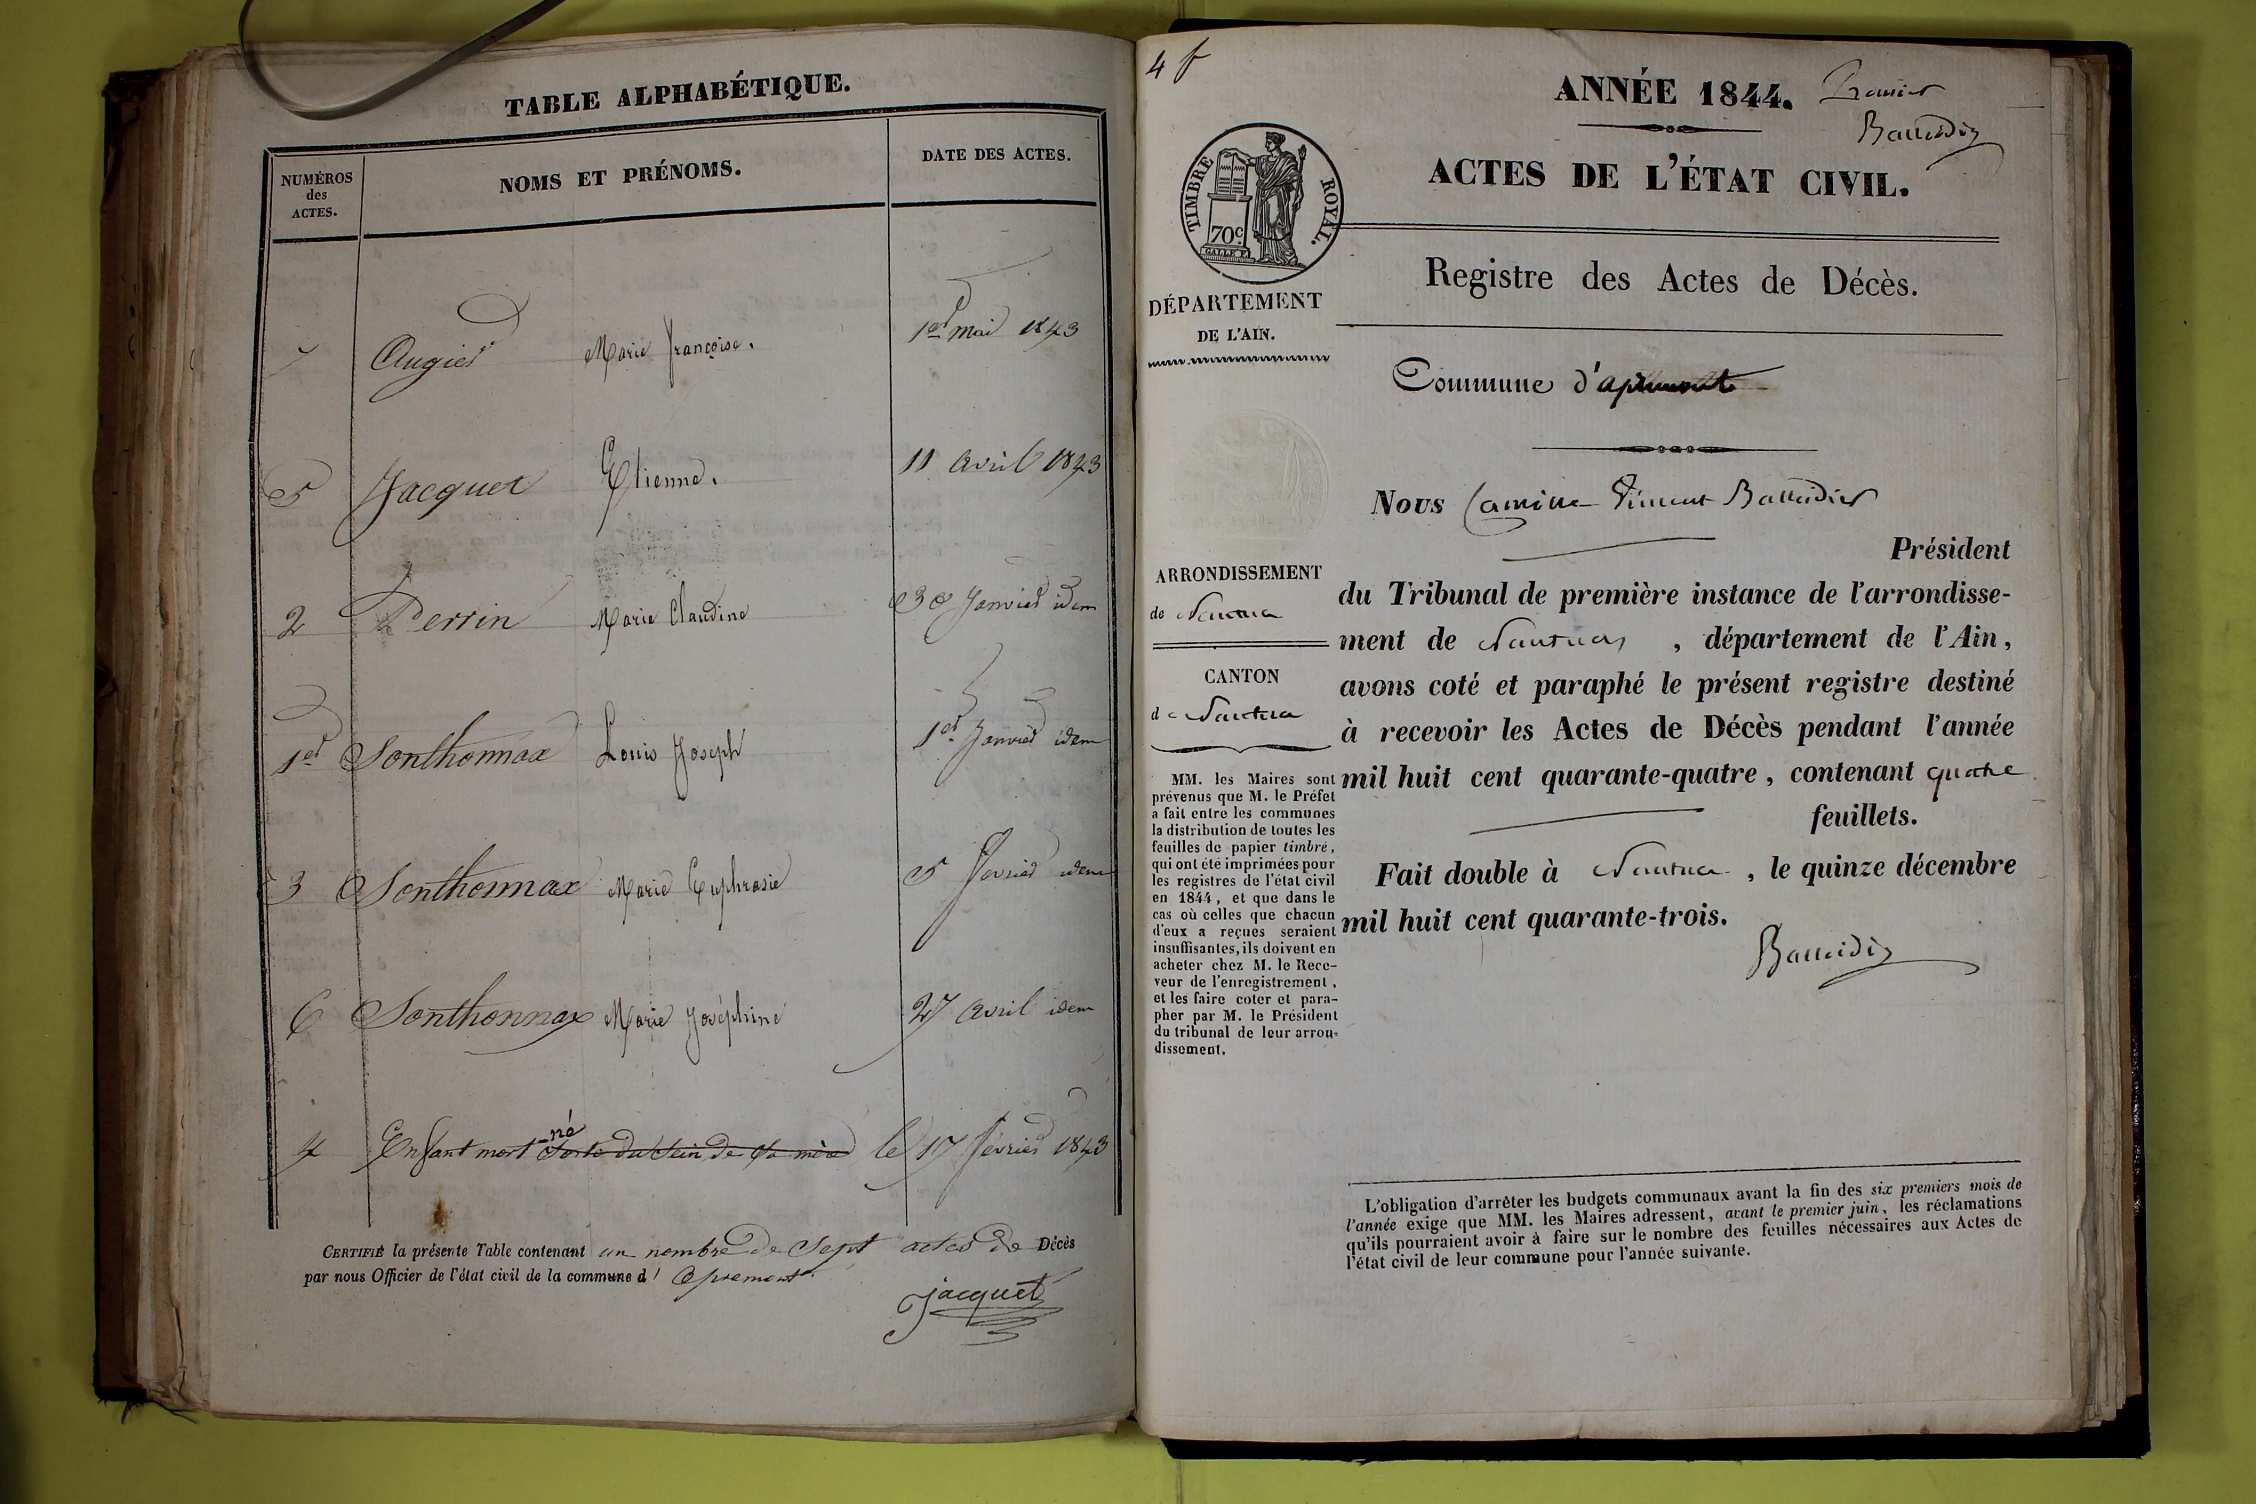 TABLE ALPHABÉTIQUE.
NUMÉROS
des
ACTES.
NOMS ET PRÉNOMS.
DATE DES ACTES.
7 Augier Marie Françoise. 1er mai 1843
5 Jacquet Etienne. 11 avril 1843
2 Perrin Marie Claudine 30 Janvier idem
1er Sonthonnax Louis Joseph 1er Janvier idem
3 Sonthonnax Marie Euphrasie 5 Fevrier idem
6 Sonthonnax Marie Joséphine 27 avril idem
-né
4 Enfant mort Sorti du Sein de Sa mère le 17 février 1843
CERTIFIÉ la présente Table contenant un nombre de Sept actes de Décès
par nous Officier de l'état civil de la commune d' Apremont.
Jacquet
4 f
ANNÉE 1844. Premier
ACTES DE L'ÉTAT CIVIL.
TIMBRE ROYAL.
70c
Registre des Actes de Décès.
DÉPARTEMENT
DE L'AIN.
Commune d'apremont
Nous Camille Vincent
Président
ARRONDISSEMENT
de Nantua
CANTON
de Nantua
du Tribunal de première instance de l'arrondisse-
ment de Nantua, département de l'Ain,
avons coté et paraphé le présent registre destiné
à recevoir les Actes de Décès pendant l'année
mil huit cent quarante-quatre, contenant quatre
feuillets.
Fait double à Nantua, le quinze décembre
mil huit cent quarante-trois.
MM. les Maires sont
prévenus que M. le Préfet
a fait entre les communes
la distribution de toutes les
feuilles de papier timbré,
qui ont été imprimées pour
les registres de l'état civil
en 1844, et que dans le
cas où celles que chacun
d'eux a reçues seraient
insuffisantes, ils doivent en
acheter chez M. le Rece-
veur de l'enregistrement,
et les faire coter et para-
pher par M. le Président
du tribunal de leur arron-
dissement.
L'obligation d'arrêter les budgets communaux avant la fin des six premiers mois de
l'année exige que MM. les Maires adressent, avant le premier juin, les réclamations
qu'ils pourraient avoir à faire sur le nombre des feuilles nécessaires aux Actes de
l'état civil de leur commune pour l'année suivante.